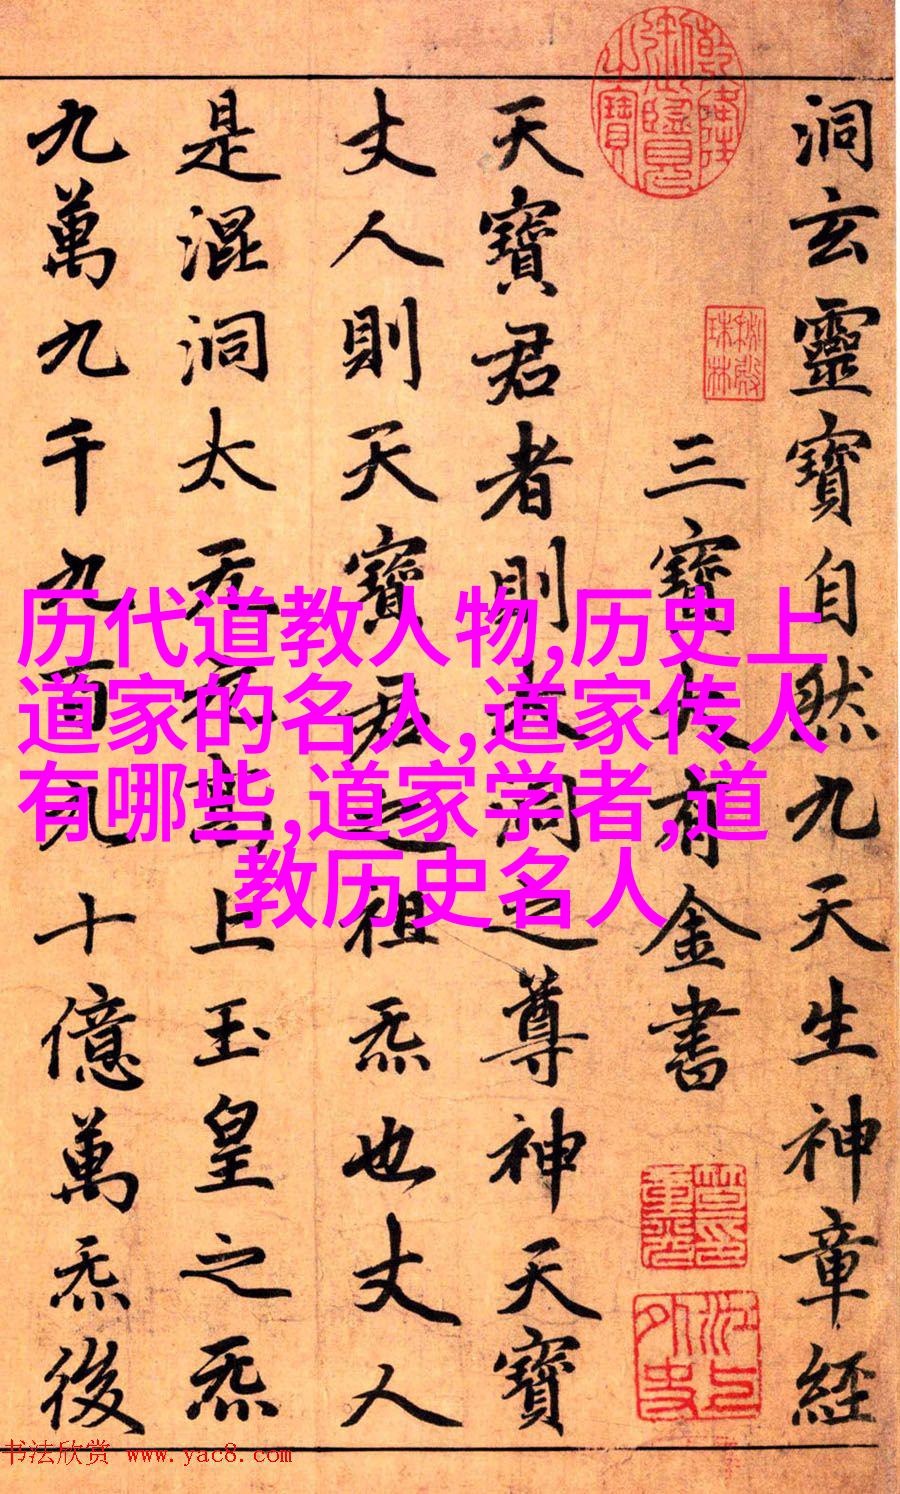 洞玄靈寶自然九天生神章經
三寶大有金書
天寶君者則大洞之尊神天寶
丈人則天寶君之祖炁也丈人
是混洞太无元高上玉皇之炁
九萬九千九百九十億萬炁後
历代道教人物,历史上
道家的名人,道家传人
有哪些,道家学者,道
教历史名人
书法欣赏 www.yac8.com